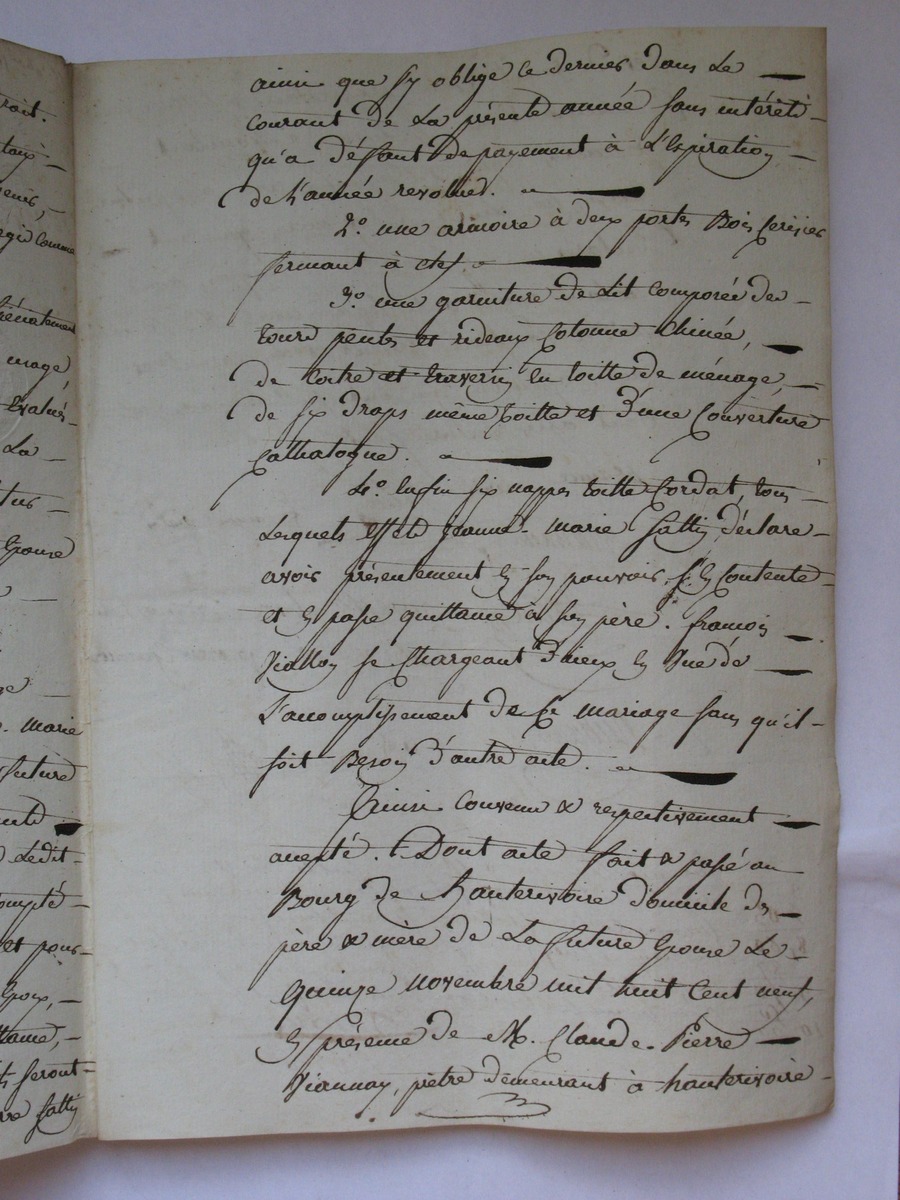 ainsi que s'y oblige ce dernier dans le
courant de la présente année sans intérêts
qu'a défaut de payement à l'expiration
de l'année revolue.
2.o une armoire à deux portes Bois Cerisier
fermant à clef.
3.o une garniture de Lit composée de
tours pentes et rideaux Cotonne Chinée,
de Coitre et traversin en toille de ménage,
de six draps même toille et d'une Couverture
Cathalogne.
4.o enfin six nappes toille Cordat, tous
lesquels effets jeanne-marie declare
avoir présentement en son pouvoir, s'en Contente
et en passe quittance à son père. françois
Viallon se Chargeant d'iceux en vue de
l'accomplissement de ce mariage sans qu'il
soit Besoin d'autre acte.
Ainsi Convenu & respectivement
accepté. Dont acte fait & passé au
Bourg de hauterivoire domicile des
père & mère de La future Epouse Le
quinze novembre mil huit Cent neuf,
En présence de M. Claude-Pierre
prêtre demeurant à hauterivoire
roit.
Comme
mage
évalués
La
Epouse
marie
future
Ledit
ompté
et pour
Epoux,
ttance,
seront